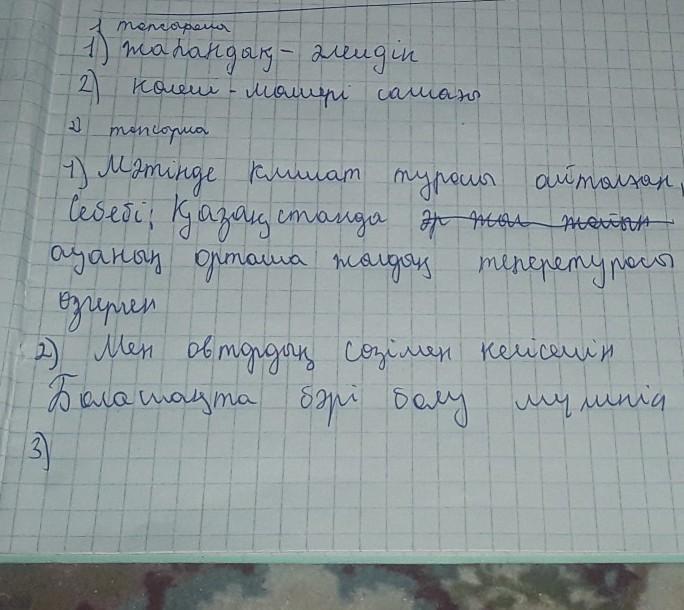 1 тапсарма
1) жаһандық - әлемдік
2) көлемі - мөлшері саманы
2) тапсорма
1) Мәтінде климат туралы айталған,
Себебі; Қазақстанда әр жыл жайын
ауаның орташа жылдық температурасы
өзгерген
2) Мен автордың сөзімен келісемін
Болашақта бәрі болу мүмкін
3)